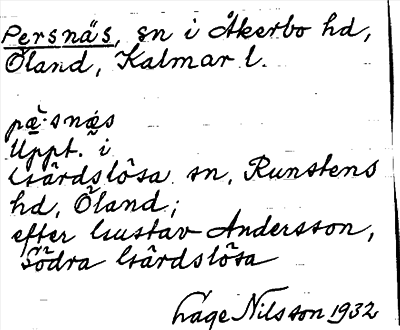 Persnäs, sn i Åkerbo hd,
Öland, Kalmar l.
pä̀·snäs
Uppt. i
Gärdslösa sn, Runstens
hd, Öland;
efter Gustav Andersson,
Södra Gärdslösa
Låge Nilsson 1932